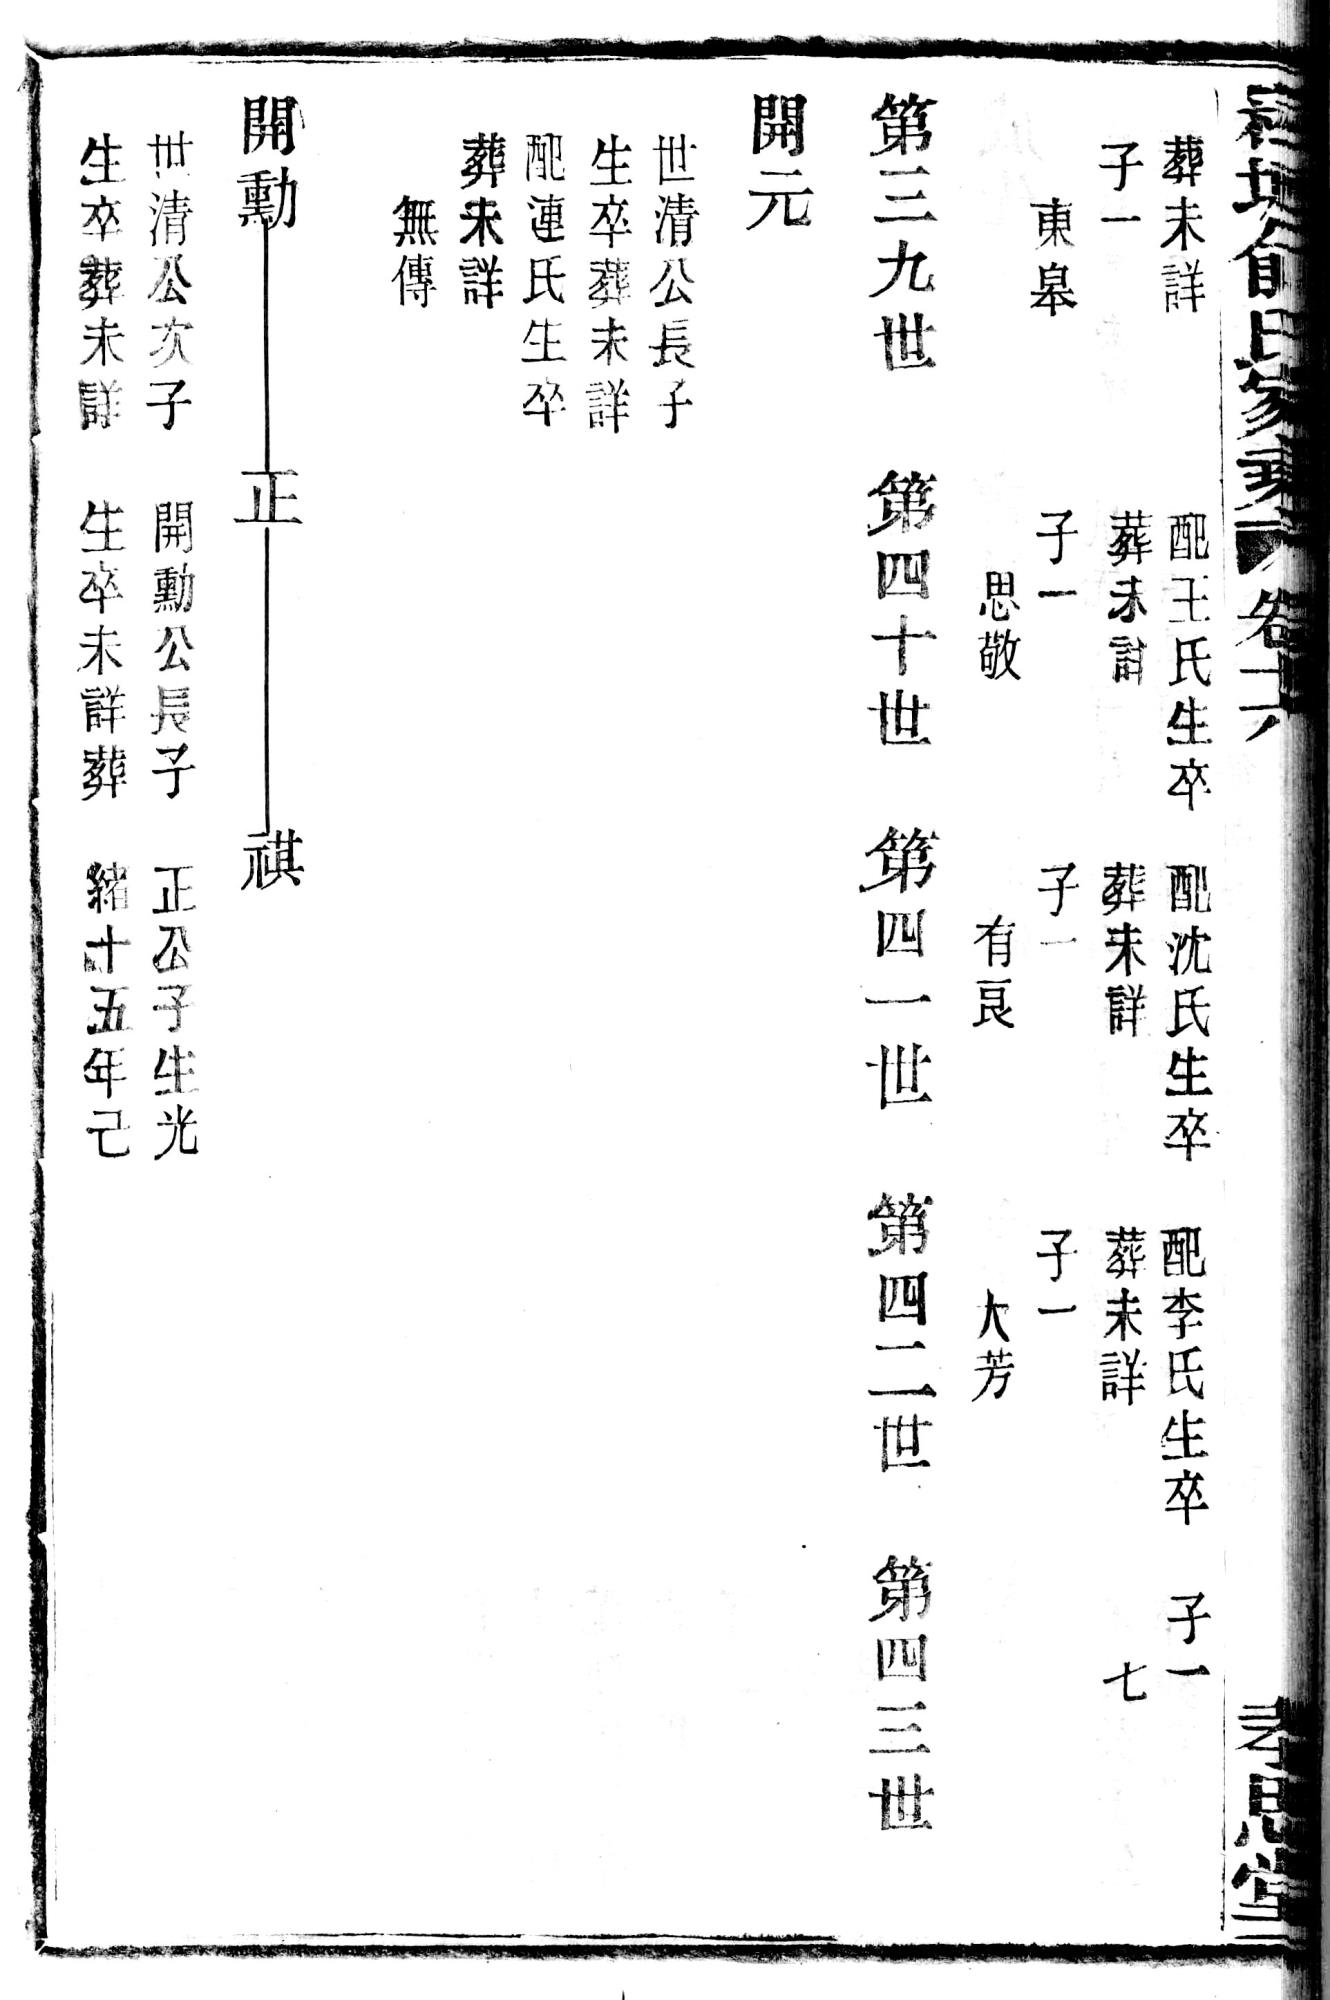 俞氏家乘
卷十六
孝思堂
葬未詳
子一
東皋
配王氏生卒
葬未詳
子一
思敬
配沈氏生卒
葬未詳
子一
有良
配李氏生卒
葬未詳
子一
大芳
子一
七
第三九世 第四十世 第四一世 第四二世 第四三世
開元
世清公長子
生卒葬未詳
配連氏生卒
葬未詳
無傳
開勳 正 祺
世清公次子
生卒葬未詳
開勳公長子
生卒未詳葬
正公子生光
緒十五年己